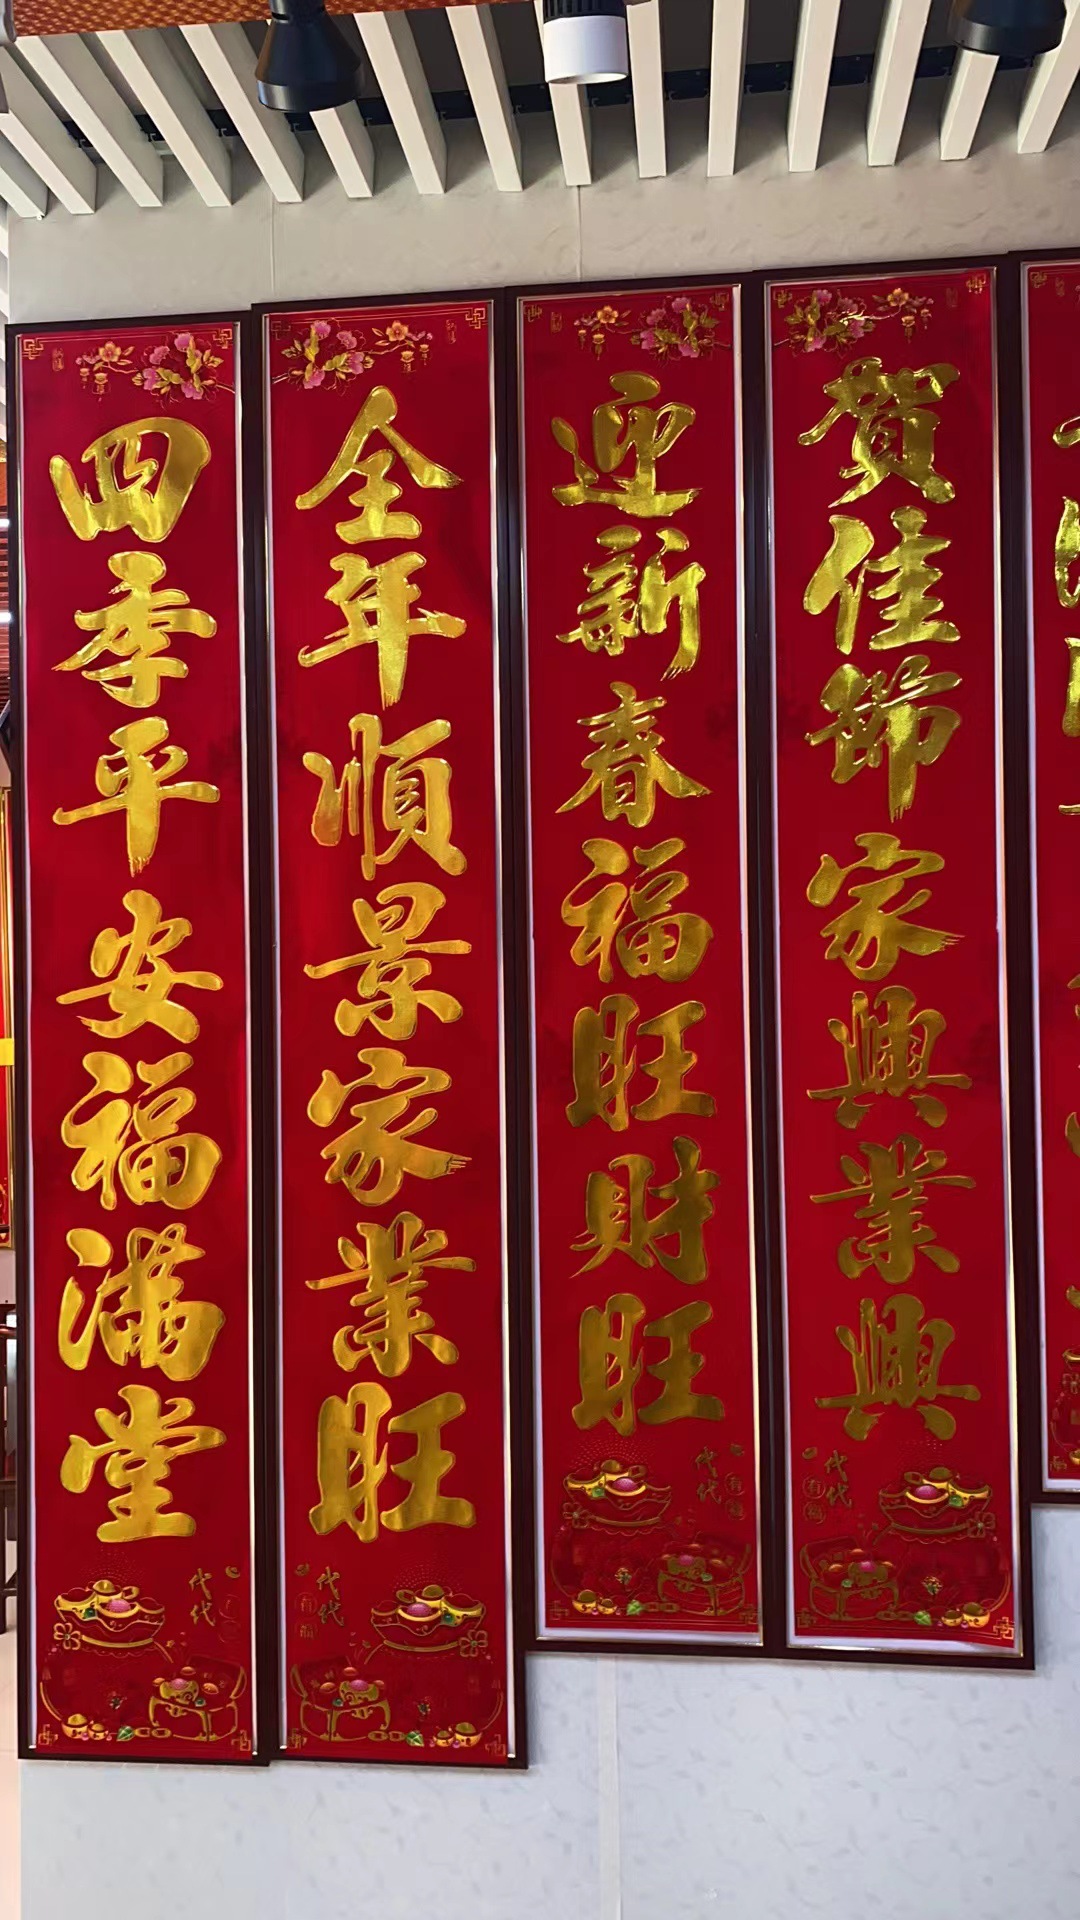 賀佳節家興業興
代代有福
迎新春福旺財旺
代代有福
全年順景家業旺
代代有福
四季平安福滿堂
代代